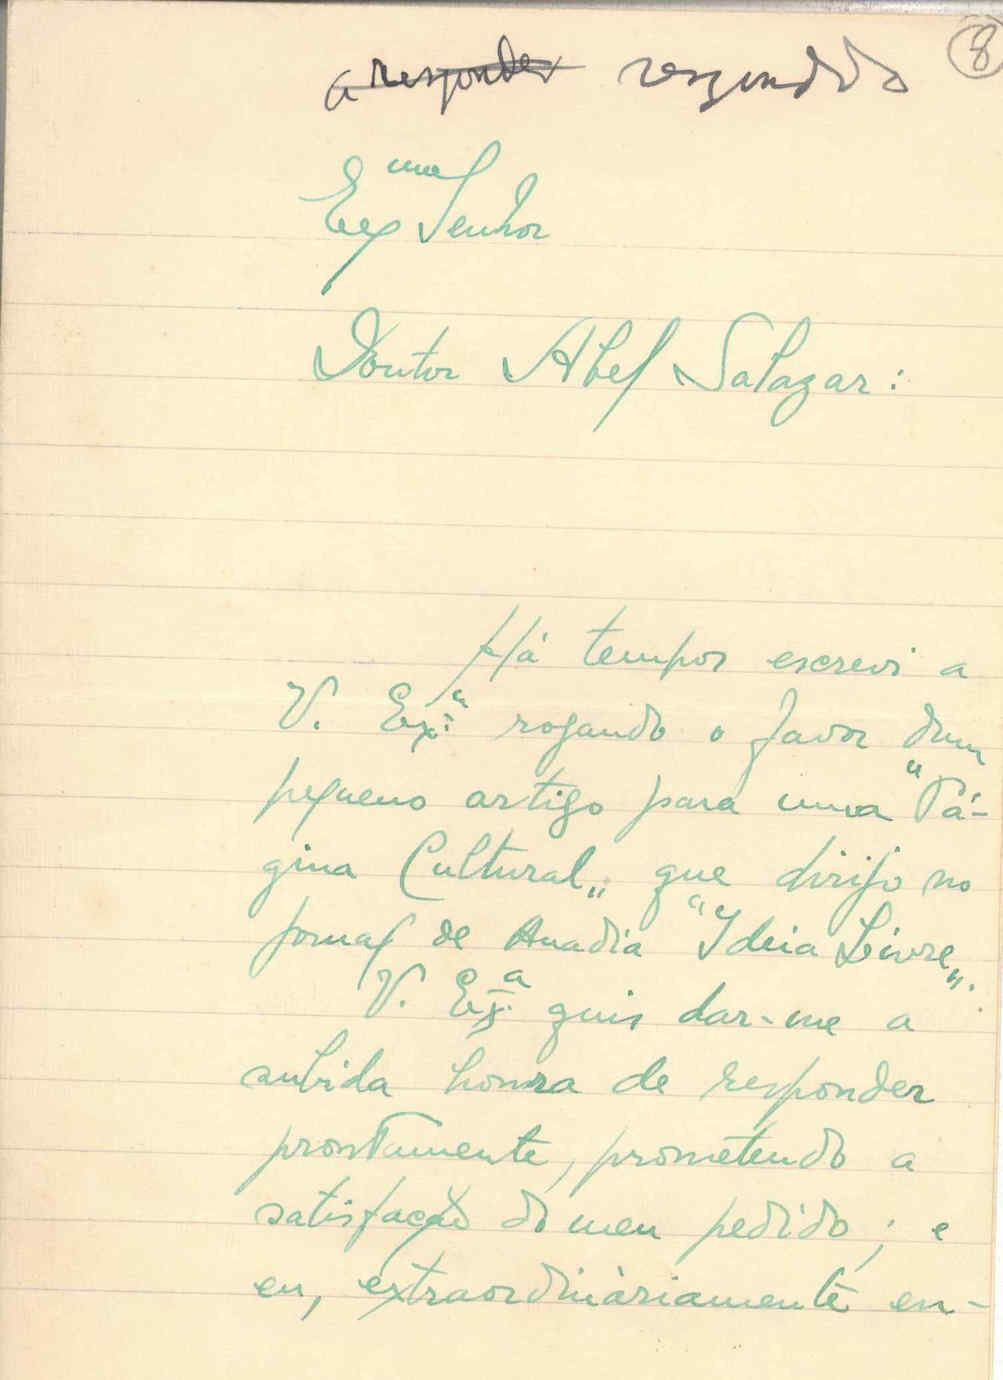 8
a responder respondido
Exmo Senhor
Doutor Abel Salazar:
Há tempos escrevi a
V. Ex.ª rogando o favor dum
pequeno artigo para uma "Pá-
gina Cultural„ que dirijo no
jornal de Anadia "Ideia Livre„.
V. Ex.ª quis dar-me a
subida honra de responder
prontamente, prometendo a
satisfação do meu pedido; e
eu, extraordinàriamente en-